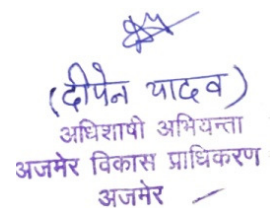 (दीपेन यादव)
अधिशाषी अभियन्ता
अजमेर विकास प्राधिकरण
अजमेर